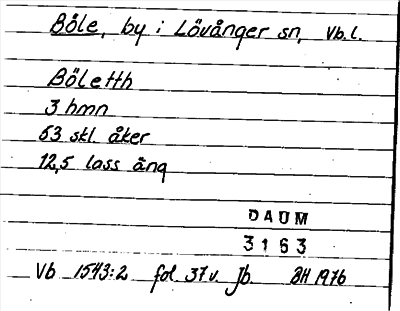 Böle, by i Lövånger sn, Vb.l.
Böletth
3 hmn
53 skl. åker
12,5 lass äng
DAUM
3163
Vb 1543:2 fol. 37v. Jb. BH 1976